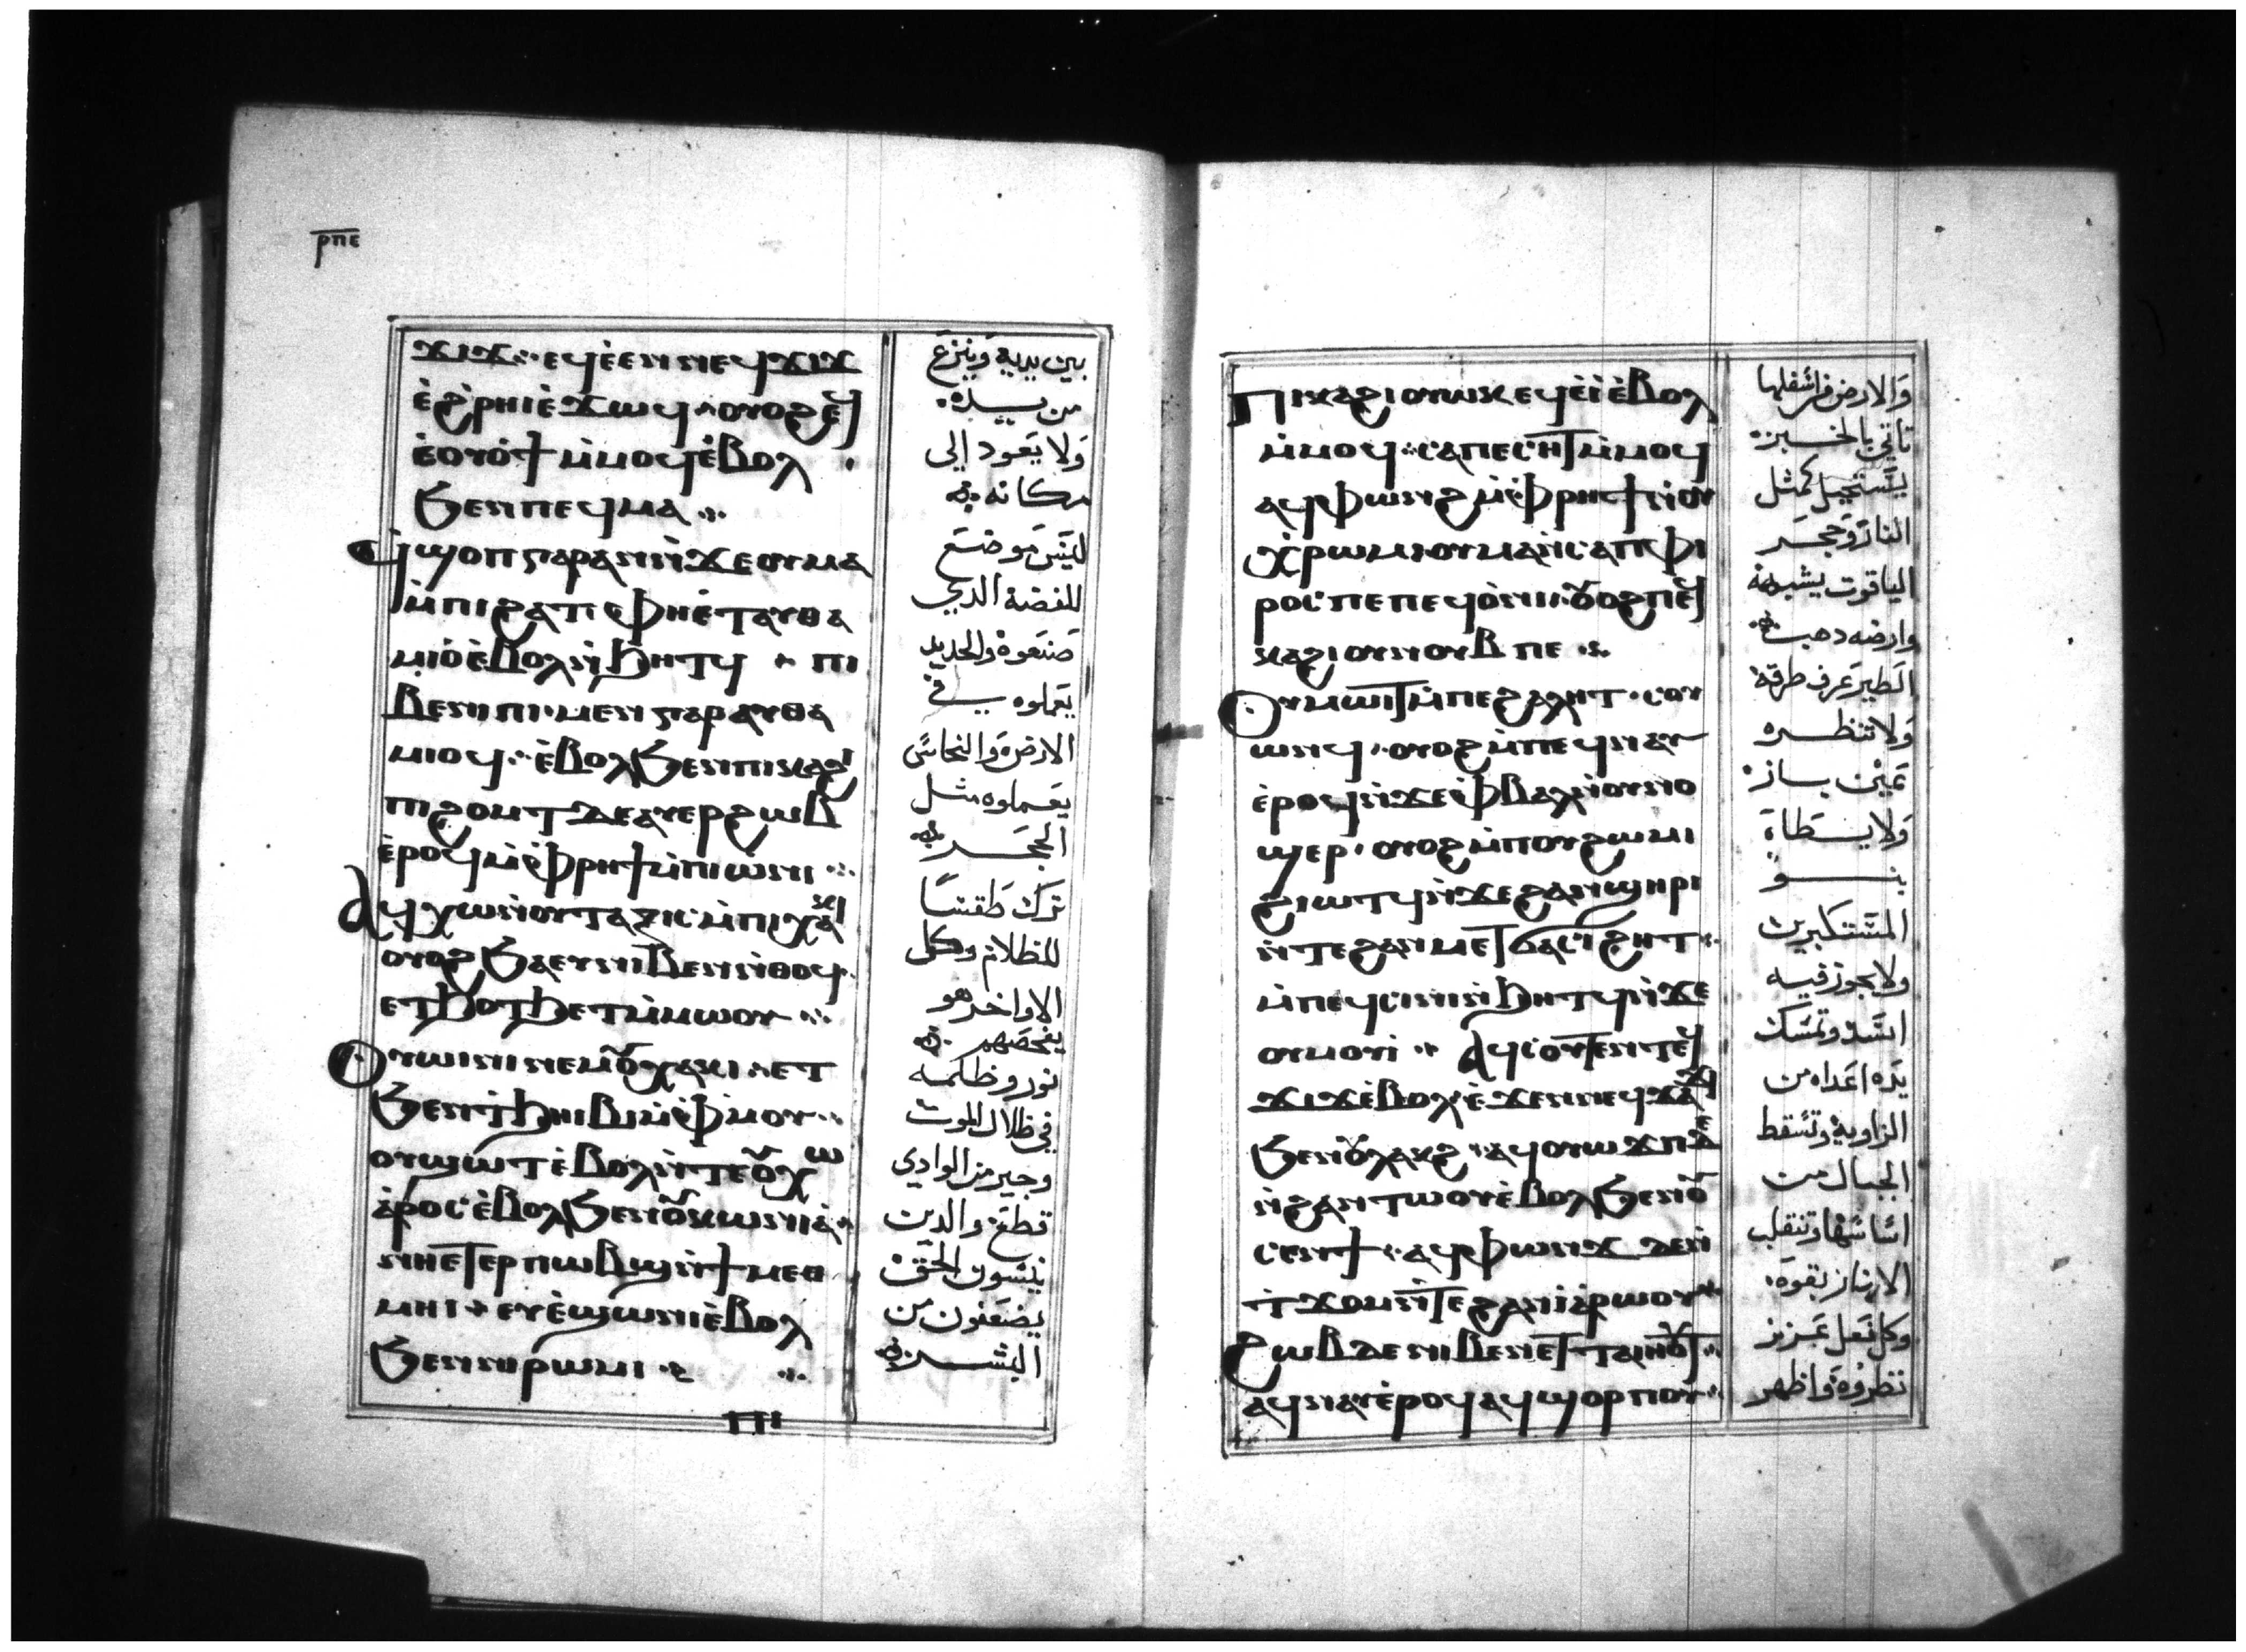 ⲣⲡⲉ
ϫⲓϫ ⲉϥⲉ̀ⲉⲛ ⲛⲉϥϫⲓϫ
ⲉ̀ϩ̀ⲣⲏⲓ ⲉ̀ϫⲱϥ ⲟⲩⲟϩ ⲉϥ
ⲉ̀ⲟⲩⲟ̀ϯ ⲙ̀ⲙⲟϥ ⲉ̀ⲃⲟⲗ
ϧⲉⲛ ⲡⲉϥⲙⲁ
ϥ̀ϣⲟⲡ ⲅⲁⲣ ⲁⲛ ⲛ̀ϫⲉ ⲟⲩⲙⲁ
ⲙ̀ⲡⲓϩⲁⲧ ⲫⲏⲉ̀ⲧⲁⲩⲑⲁ
ⲙⲓⲟ̀ ⲉ̀ⲃⲟⲗ ⲛ̀ϧⲏⲧϥ ⲡⲓ
ⲃⲉⲛⲓⲡⲓ ⲙⲉⲛ ⲅⲁⲣ ⲁⲩⲑⲁ
ⲙⲓⲟϥ ⲉ̀ⲃⲟⲗ ϧⲉⲛ ⲡⲓⲕⲁϩⲓ
ⲡϩⲟⲙⲧ ⲇⲉ ⲁⲩⲉⲣϩⲱⲃ
ⲉ̀ⲣⲟϥ ⲙ̀ⲫⲣⲏϯ ⲙ̀ⲡⲓⲱ̀ⲛⲓ
ⲁϥⲭⲱ ⲛ̀ⲟⲩⲧⲁⲝⲓⲥ ⲙ̀ⲡⲓⲭⲁⲕⲓ
ⲟⲩⲟϩ ϧⲁⲉⲩ ⲛⲓⲃⲉⲛ ⲛ̀ⲑⲟϥ
ⲉⲧϧⲟⲧϧⲉⲧ ⲙ̀ⲙⲱⲟⲩ
ⲟⲩⲱⲓⲛⲓ ⲛⲉⲙ ⲟⲩⲭⲁⲕⲓ ⲉⲧ
ϧⲉⲛ ⲧ̀ϧⲏⲓⲃⲓ ⲙ̀ⲫⲙⲟⲩ
ⲟⲩϣⲱⲧ ⲉ̀ⲃⲟⲗ ⲛ̀ⲧⲉ ⲟⲩⲭⲱ
ⲁ̀ⲣⲟⲥ ⲉ̀ⲃⲟⲗ ϧⲉⲛ ⲟⲩⲕⲱⲛⲓⲁ̀
ⲛⲏⲉⲧⲉⲣⲡⲱⲃϣ ⲛ̀ϯⲙⲉⲑ
ⲙⲏⲓ ⲉⲩⲉ̀ϣⲱⲛⲓ ⲉ̀ⲃⲟⲗ
ϧⲉⲛ ⲛⲓⲣⲱⲙⲓ
ⲡⲓ
بين يديه وينزع
من يده
ولا يعود الي
مكانه
ليس موضع
للفضة الدي
صنعوه والحديد
يعملوه في
الارض والنحاس
يعملوه مثل
الحجر
ترك طقسا
للظلام وكل
الاواخر هو
يفحصهم
نور وظلمه
في ظلال الموت
وجير من الوادي
تطع والدين
ينسون الحق
يضعفون من
البشر
ⲡⲓⲕⲁϩⲓ ⲟⲩⲱⲓⲕ ⲉϥⲉ̀ⲓ̀ ⲉ̀ⲃⲟⲗ
ⲙ̀ⲙⲟϥ ⲥⲁⲡⲉⲥⲏⲧ ⲙ̀ⲙⲟϥ
ⲁϥⲫⲱⲛϩ ⲙ̀ⲫⲣⲏϯ ⲛ̀ⲟⲩ
ⲭ̀ⲣⲱⲙ ⲟⲩⲙⲁ ⲛ̀ⲥⲁⲡⲫⲓ
ⲣⲟⲥ ⲡⲉ ⲡⲉϥⲱ̀ⲛⲓ ⲟⲩⲟϩ ⲡⲉϥ
ⲕⲁϩⲓ ⲟⲩⲛⲟⲩⲃ ⲡⲉ
ⲟⲩⲙⲱⲓⲧ ⲙ̀ⲡⲉ ϩⲁⲗⲏⲧ ⲥⲟⲩ
ⲱⲛϥ ⲟⲩⲟϩ ⲙ̀ⲡⲉϥⲛⲁⲩ
ⲉ̀ⲣⲟϥ ⲛ̀ϫⲉ ⲫⲃⲁⲗ ⲛ̀ⲟⲩⲛⲟ
ϣⲉⲣ ⲟⲩⲟϩ ⲙ̀ⲡⲟⲩϩⲱⲙⲓ
ϩⲓⲱⲧϥ ⲛ̀ϫⲉ ϩⲁⲛϣⲏⲣⲓ
ⲛ̀ⲧⲉ ϩⲁⲛⲙⲉⲧϭⲁⲥⲓϩⲏⲧ
ⲙ̀ⲡⲉϥⲥⲓⲛⲓ ⲛ̀ϧⲏⲧϥ ⲛ̀ϫⲉ
ⲟⲩⲙⲟⲩⲓ̀ ⲁϥⲥⲟⲩⲧⲉⲛ ⲧⲉϥ
ϫⲓϫ ⲉ̀ⲃⲟⲗ ⲉ̀ϫⲉⲛ ⲛⲉϥϫⲁϫⲓ
ϧⲉⲛ ⲟⲩⲗⲁⲕϩ ⲁϥⲟⲩⲱϫⲡ ⲇⲉ
ⲛ̀ϩⲁⲛⲧⲱⲟⲩ ⲉ̀ⲃⲟⲗ ϧⲉⲛ ⲟⲩ
ⲥⲉⲛϯ ⲁϥⲫⲱⲛϫ ⲇⲉ ⲛ̀
ⲧ̀ϫⲟⲙ ⲛ̀ⲧⲉ ϩⲁⲛⲓⲁ̀ⲣⲱⲟⲩ
ϩⲱⲃ ⲇⲉ ⲛⲓⲃⲉⲛ ⲉⲧⲧⲁⲓⲏⲟⲩⲧ
ⲁϥⲛⲁⲩ ⲉ̀ⲣⲟϥ ⲁϥϣⲟⲣⲡⲟⲩ
والارض من اسفلها
تاتي بالخبز
يستحيل كمثل
النار وحجر
الياقوت يشبهه
وارضه دهب
الطير عرف طرقه
ولا تنظره
عين باز
ولا يسطاه
بنو
المستكبرين
ولا يجوز فيه
اسد وتمسك
يده اعداه من
الزاوية وتسقط
الجبال من
اساسها وتنقلب
الانهار بقوه
وكل فعل عزيز
نظروه واظهر